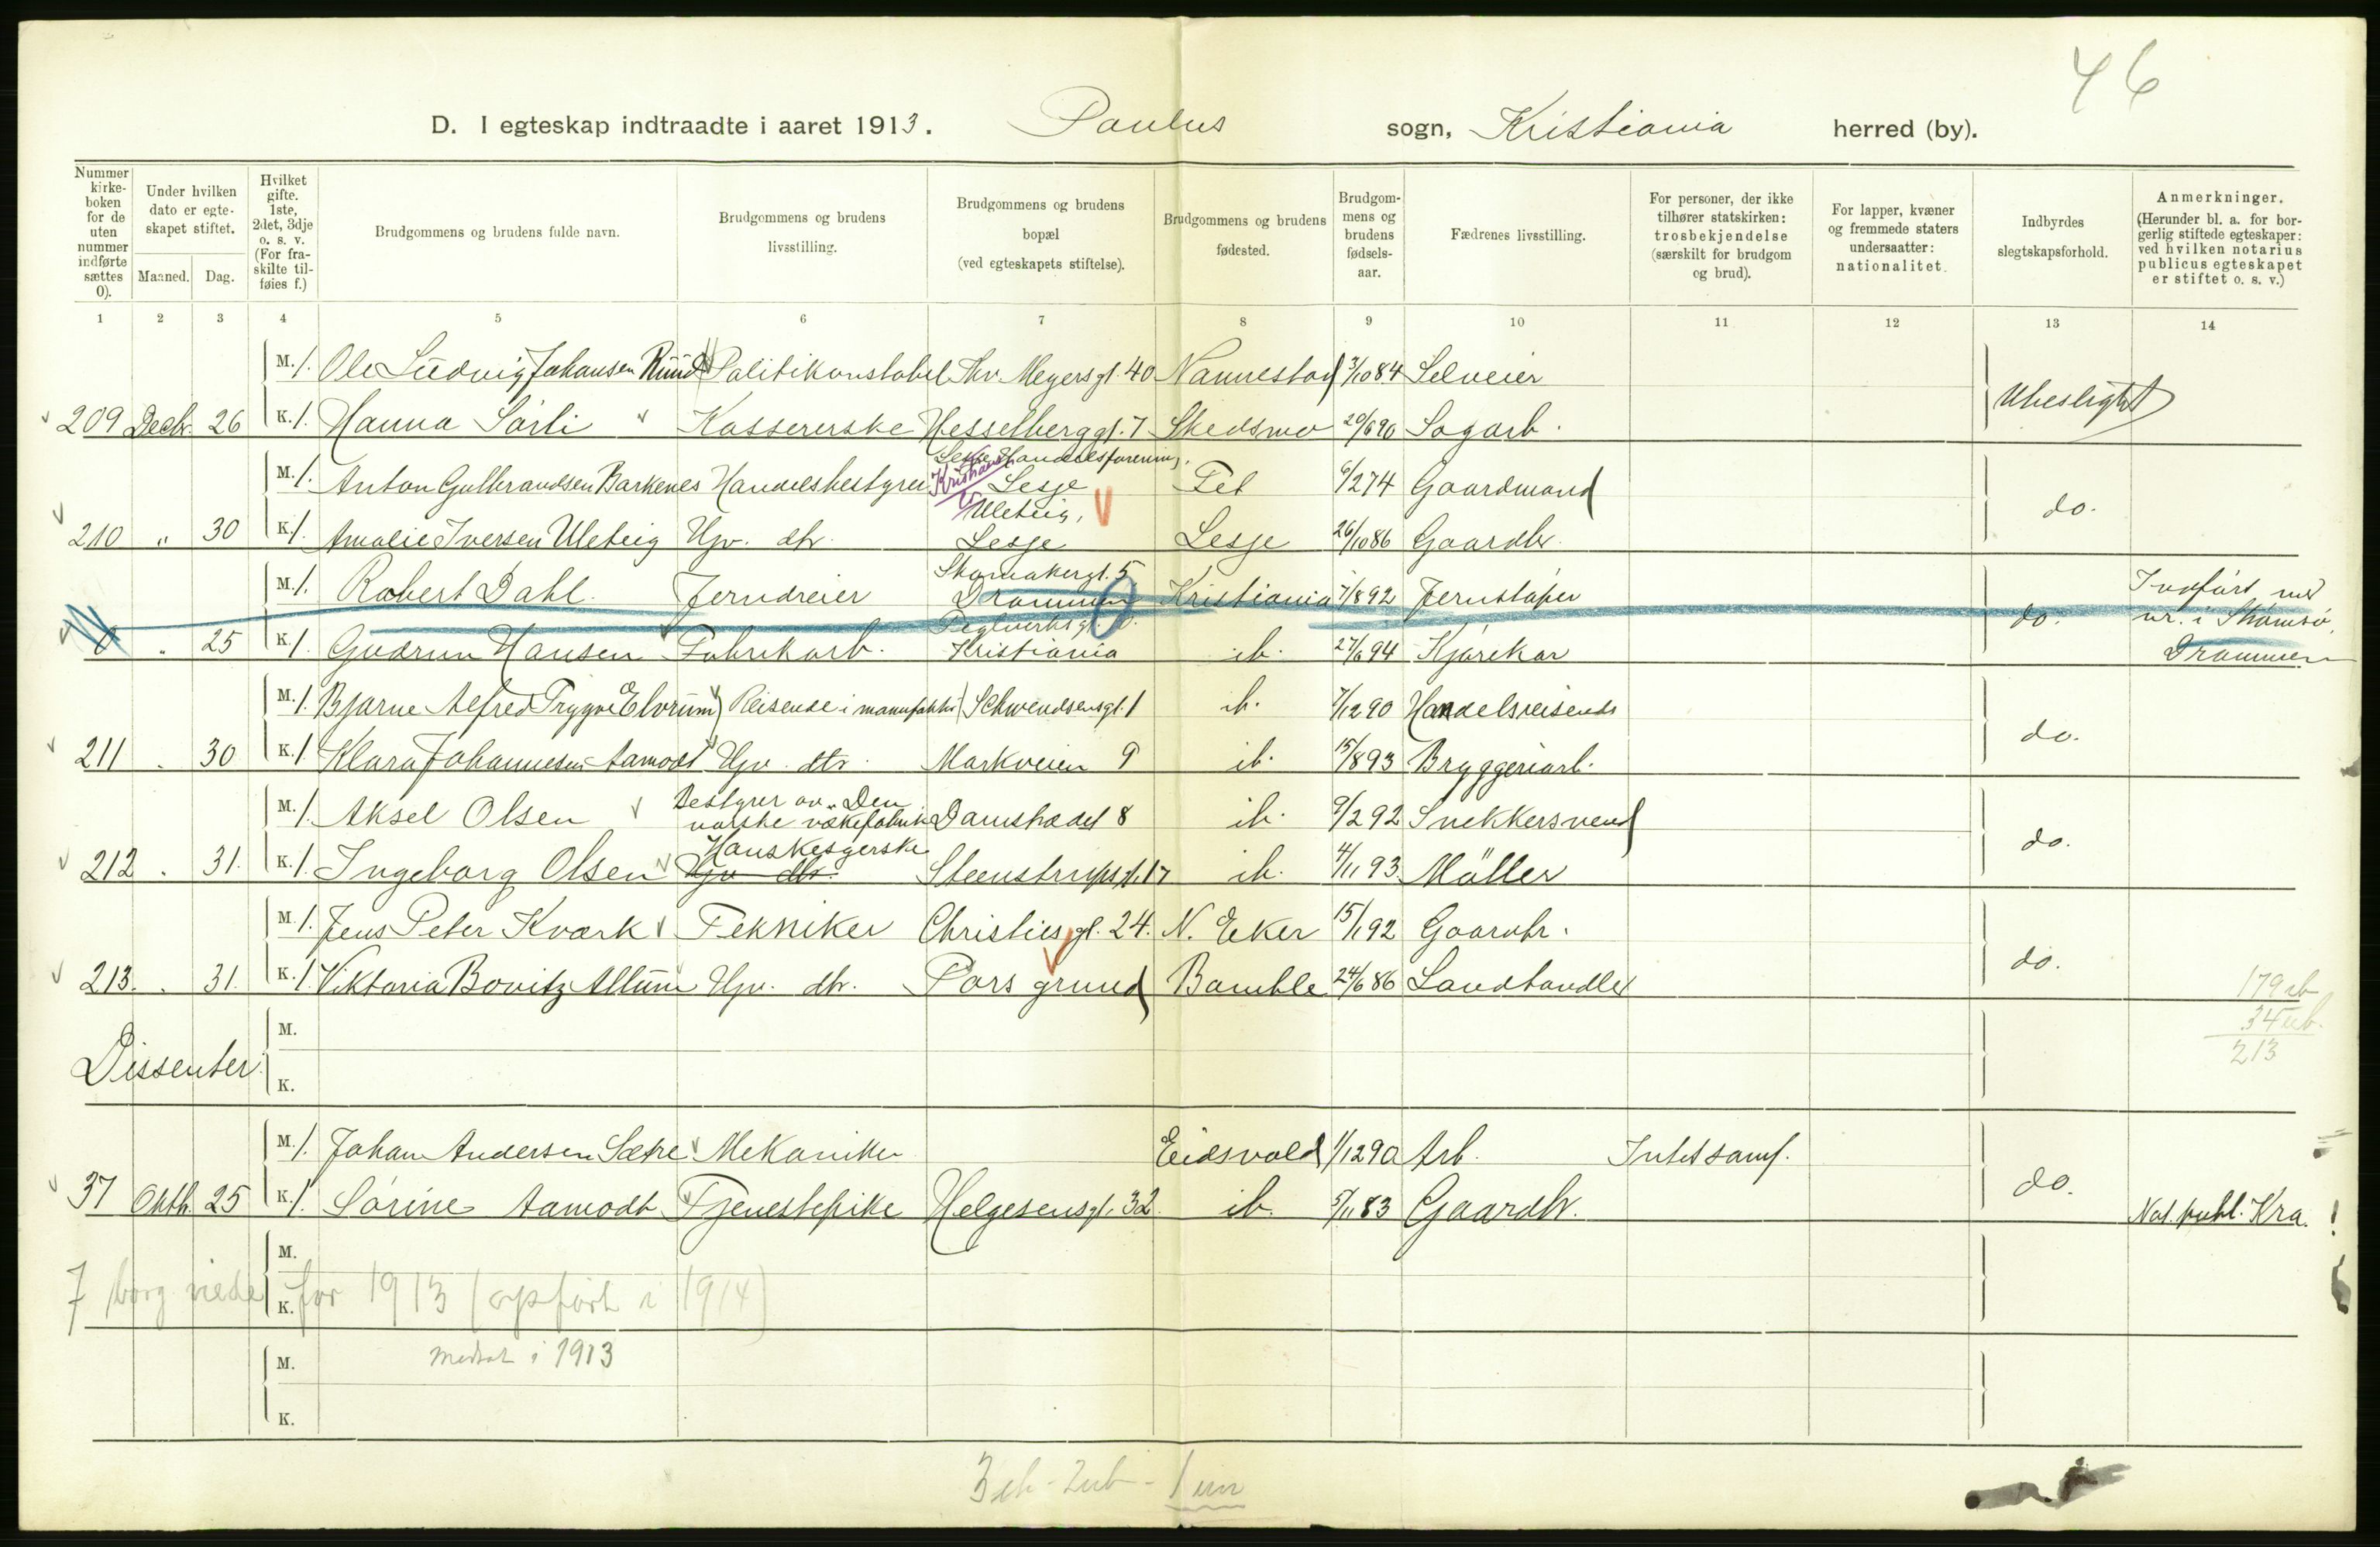 46
D. I egteskap indtraadte i aaret 1913. Paulus sogn, Kristiania herred (by).
Nummer kirkeboken for de uten nummer indførte sættes 0).
Under hvilken dato er egteskapet stiftet.
Maaned. Dag.
Hvilket gifte. 1ste, 2det, 3dje o. s. v. (For fraskilte tilføies f.)
Brudgommens og brudens fulde navn.
Brudgommens og brudens livsstilling.
Brudgommens og brudens bopæl (ved egteskapets stiftelse).
Brudgommens og brudens fødested.
Brudgommens og brudens fødselsaar.
Fædrenes livsstilling.
For personer, der ikke tilhører statskirken: trosbekjendelse (særskilt for brudgom og brud).
For lapper, kvæner og fremmede staters undersaatter: nationalitet.
Indbyrdes slegtskapsforhold.
Anmerkninger. (Herunder bl. a. for borgerlig stiftede egteskaper: ved hvilken notarius publicus egteskapet er stiftet o. s. v.)
1 2 3 4 5 6 7 8 9 10 11 12 13 14
M. 1. Ole Ludvig Johansen Ruud Politikonstabel Thv. Meyersgt. 40 Nannestad 3/10 84 Selveier
209 Decbr. 26 K. 1. Hanna Sörli Kassererske Hesselberggt. 7 Skedsmo 20/6 90 Sagarb. Ubeslegtet
Lesje Handelsforening.
M. 1. Anton Gulbrandsen Barkenes Handelsbestyrer Kristiania Lesje Fet 6/2 74 Gaardmand
Uleteig,
210 " 30 K. 1. Amalie Iversen Uleteig Hjv. dtr. Lesje Lesje 26/10 86 Gaardbr. do.
Skomakergt. 5
M. 1. Robert Dahl. Jerndreier Drammen Kristiania 7/8 92 Jernstøper Indført med
Teglverksgt.
0 " 25 K. 1. Gudrun Hansen Fabrikarb. Kristiania ib. 27/6 94 Kjørekar do. nr. i Strømsø,
Drammen
M. 1. Bjarne Alfred Trygve Elvrum Reisende i manufaktur Schwendsensgt. 1 ib. 7/12 90 Handelsreisende
211 " 30 K. 1. Klara Johannesen Aamodt Hjv. dtr. Markveien 9 ib. 15/8 93 Bryggeriarb. do.
Bestyrer av "Den
M. 1. Aksel Olsen norske vækefabrik Damstrædet 8 ib. 9/2 92 Snekkersvend
Hanskesyerske
212 " 31. K. 1. Ingeborg Olsen Hjv. dtr. Steenstrupsgt. 17 ib. 4/11 93. Möller do.
M. 1. Jens Peter Kværk Tekniker Christiesgt. 24. N. Eker 15/1 92 Gaardbr.
213. " 31. K. 1. Viktoria Bovitz Allum Hjv. dtr. Porsgrund Bamble 24/6 86 Landhandler do.
179 eb
34 ub.
213
Dissenter. M.
K.
M. 1. Johan Andersen Sætre Mekaniker Eidsvold 1/12 90 Arb. Intet samf.
37 Oktb. 25 K. 1. Sörine Aamodt Tjenestepike Helgesensgt. 32 ib. 5/11 83 Gaardbr. do. Not. publ. Kra. !
M.
7 borg. viede K. for 1913 (opført i 1914)
M. medtat i 1913
K.
3 eb - 2ub - 1 un